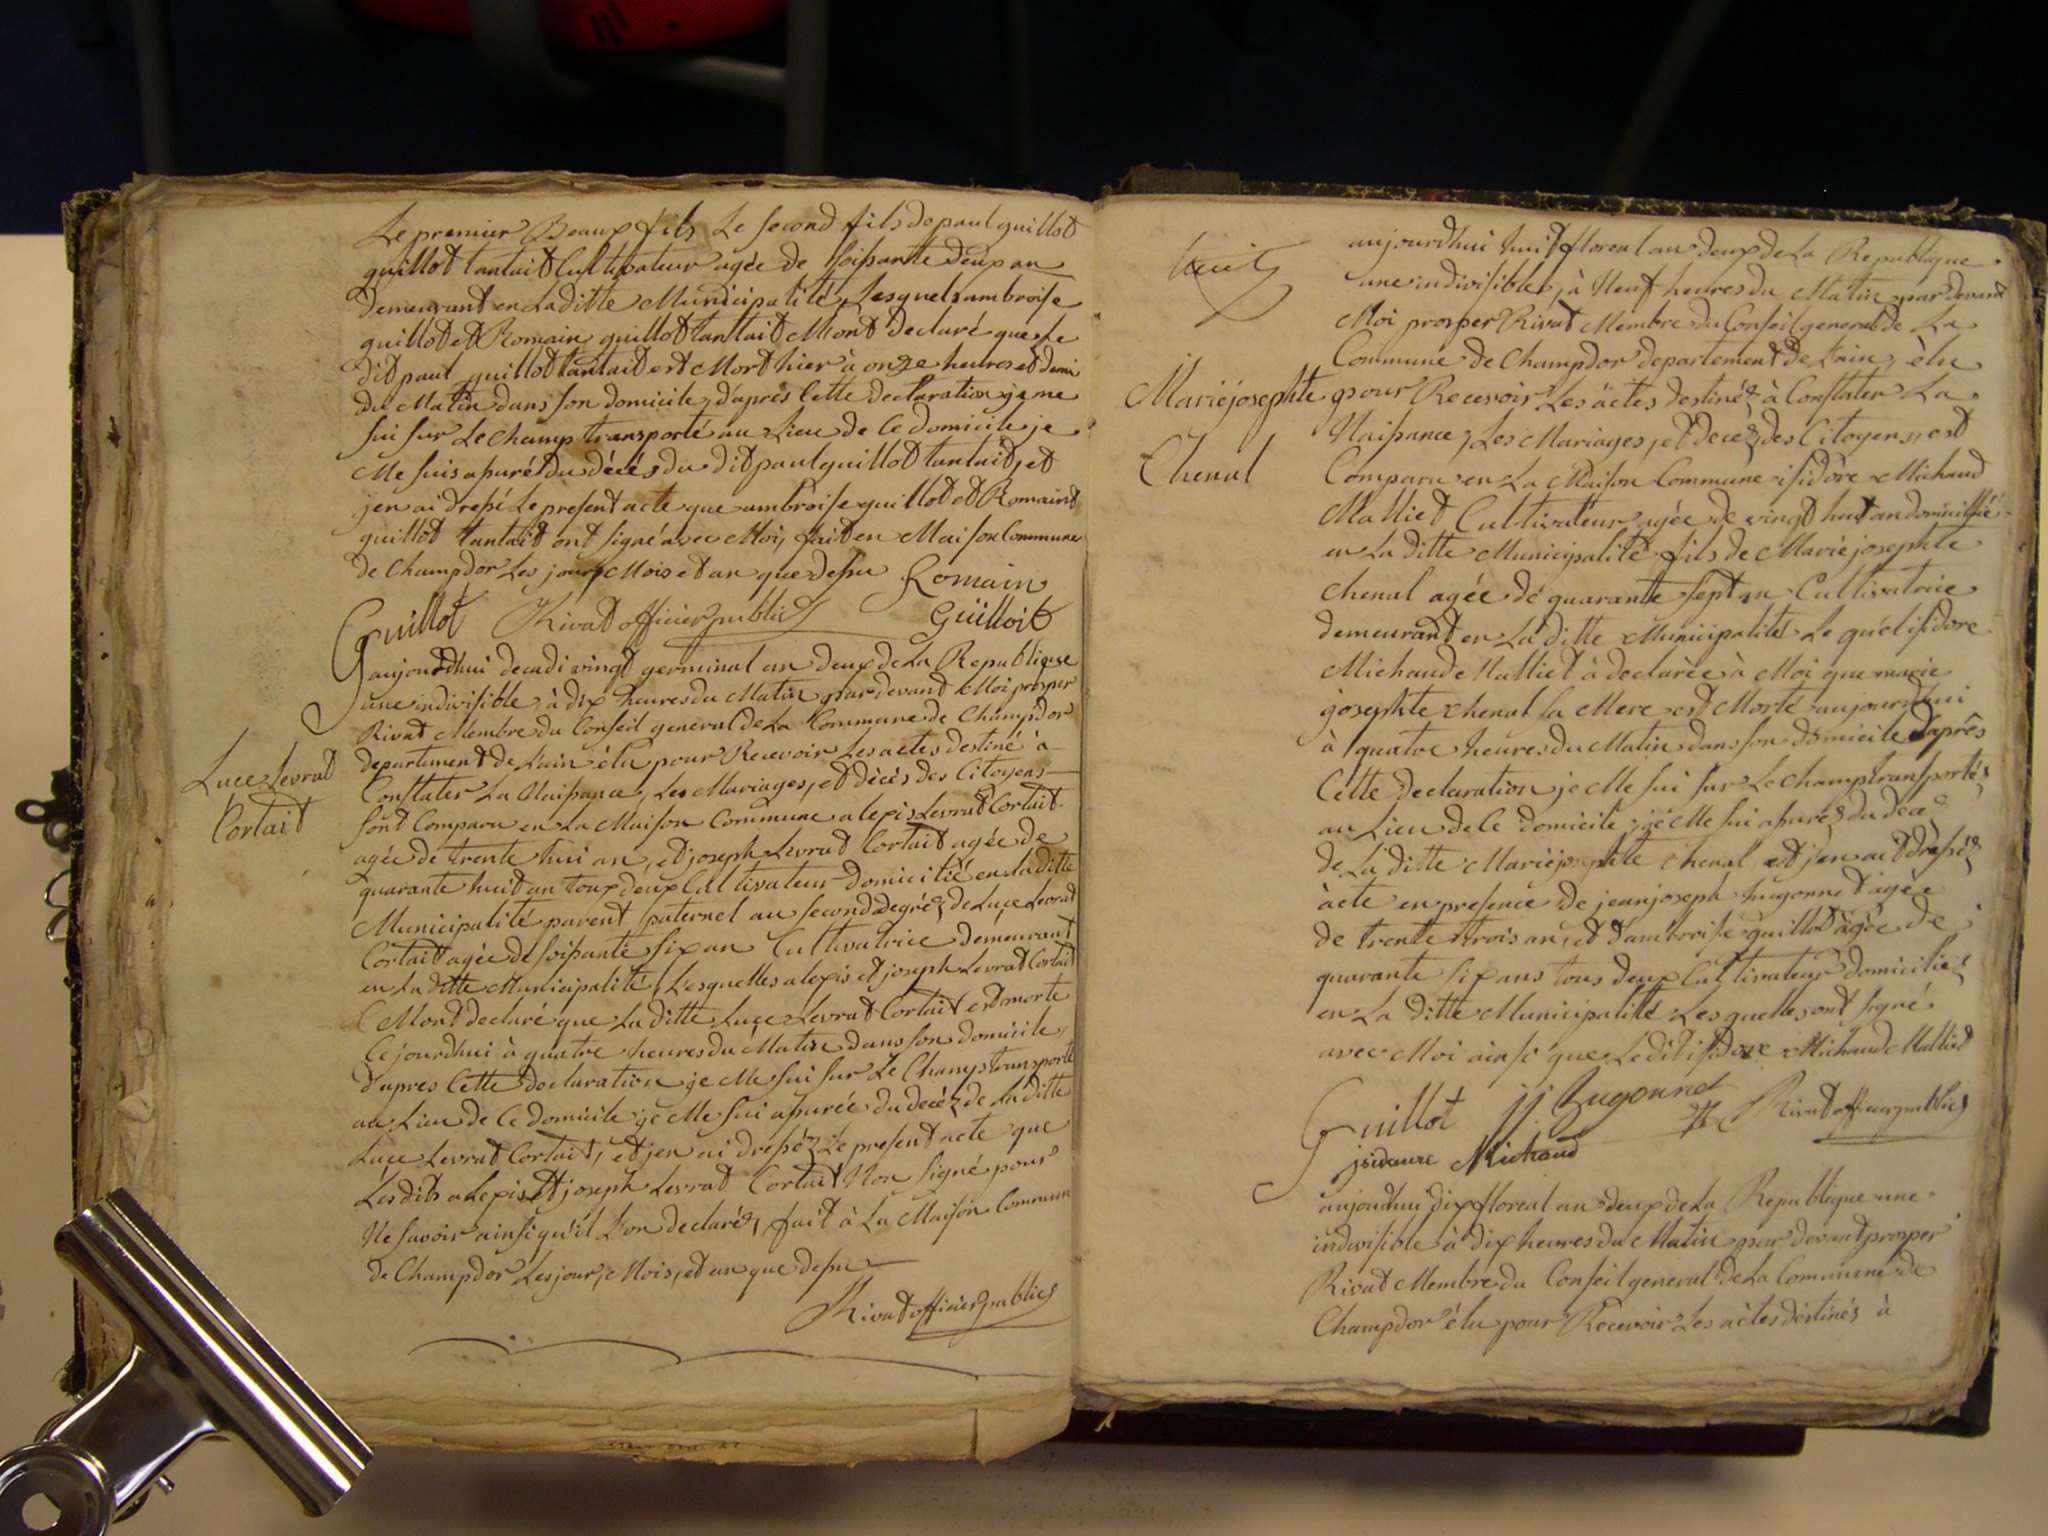 Le premier Beaux fils Le second fils de paul guillot
guillot tantait Cultivateur agée de soissante deux an
demeurant en La ditte Municipalité, Lesquels ambroise
guillot et Romain guillot tantait Mont declaré que Le
dit paul guillot tantait est Mort hier à onze heures et demi
du Matin dans son domicile, d'aprés Cette declaration je me
sui sur Le champ transporté au Lieu de Ce domicile je
Me suis assuré du décés du dit paul guillot tantait, et
jen ai dressé Le present acte que ambroise guillot et Romaint
guillot tantait ont signé avec Moi, fait en Maison Commune
de Champdor Les jour, Mois et an que dessu Romain
Guillot Rivat officier public Guilloit
aujourdhui decadi vingt germinal an deux de La Republique
une indivisible, à dix heures du Matin par devant Moi prosper
Rivat Membre du Conseil general de La Commune de Champdor
departement de Lain élu pour Recevoir Les actes destiné à
Luce Levrat
Cortait
Constater La Naissance, Les Mariages, et décés des Citoyens
sont Comparu en La Maison Commune alexis Levrat Cortait
agée de trente hui an, et joseph Levrat Cortait agée de
quarante huit an toux deux Cultivateur domicitié en La ditte
Municipalité parent paternel au second degréz de Luce Levrat
Cortait agée de soissante six an Cultivatrice demeurant
en La ditte Municipalité, Lesquelles alexis et joseph Levrat Cortait
Mont declaré que La ditte Luce Levrat Cortait est morte
Ce jourdhui à quatre heures du Matin dans son domicile,
d'apres Cette declaration je Me sui sur Le Champs transporté
au Lieu de Ce domicile je Me sui assurée du decéz de La ditte
Luce Levrat Cortait, et jen ai dresséz Le present acte que
Lesdits alexis et joseph Levrat Cortait Non signé pour
Ne savoir ainsi qu'il Lon declaréz, fait à La Maison Commun
de Champdor Les jour, Mois, et an que dessu
Rivat officier public
aujourdhui huit floreal an deux de La Republique
une indivisible, à Neuf heures du Matin par devant
Moi prosper Rivat Membre du Conseil general de La
Commune de Champdor departement de Lain, èlu
Mariejosephte
Chenal
pour Recevoir Les äctes destinéz à Constater La
Naissance, Les Mariages, et decez, des Citoyens, est
Comparu en La Maison Commune isidore Michaud
Malliet Cultivateur agée de vingt huit an domicillié
en La ditte Municipalité fils de Mariejosephte
chenal agée de quarante sept an Cultivatrice
demeurant en La ditte Municipalité Le quel isidore
Michaud Malliet à declarèe à Moi que marie
josephte chenal sa Mere est Morte aujourdhui
à quatre heures du Matin dans son domicile d'aprês
Cette declaration je Me sui sur Le champ transportéz
au Lieu de Ce domicile, je Me sui assuréz du decez
de La ditte Mariejosephte chenal et jen ait drésséz
àcte en presence de jean joseph hugonnet agée
de trente trois an, et d'ambroise guillot agée de
quarante six ans tous deux Cultivateur domiciliez
en La ditte Municipalitté Lesquelles ont signé
avec Moi ainsi que Le dit isidore Michaud Malliet
Guillot jj Zugonnet Rivat officier public
jsidaure Michaud
aujourdhui dix floreal an deux de La Republique une
indivisible à dix heures du Matin par devant prosper
Rivat Membre du Conseil general de La Commune de
Champdor élu pour Recevoir Les àctes déstinés à